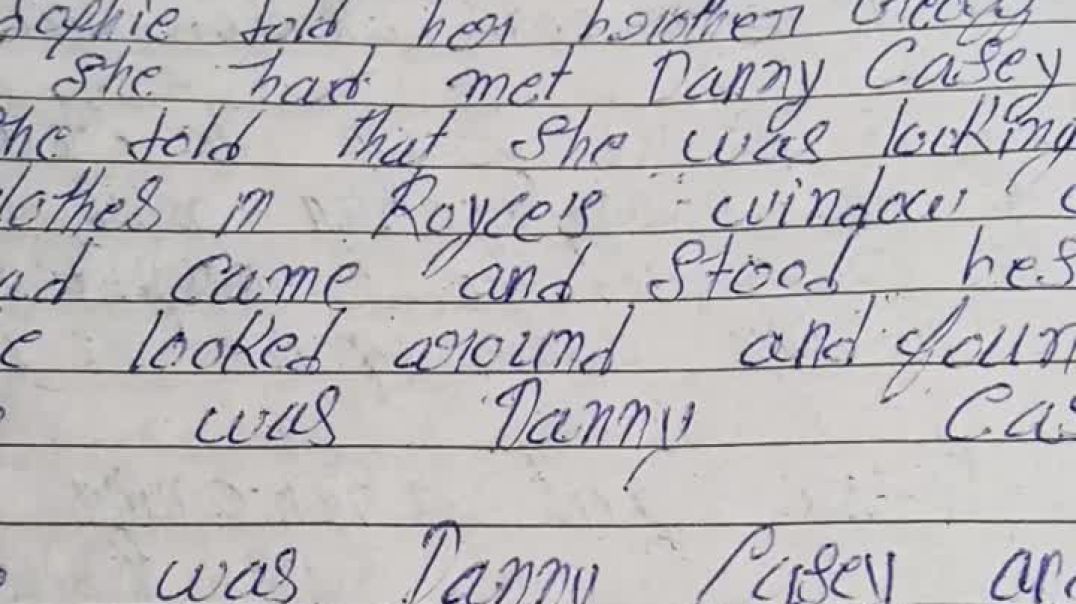 Sophie told her brother Geoff
She had met Danny Casey
he told that she was looking
lothes in Royce's window
ad came and stood bes
e looked around and foun
was Danny Cas
was Danny Casey an